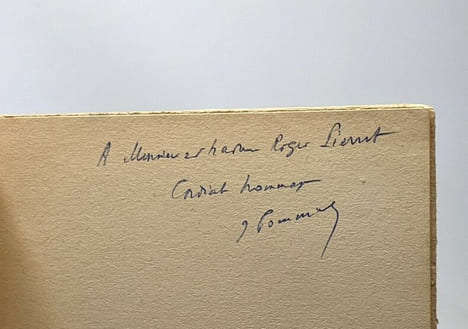 A Monsieur et Madame Roger Pierrot
Cordial hommage
J Pommier